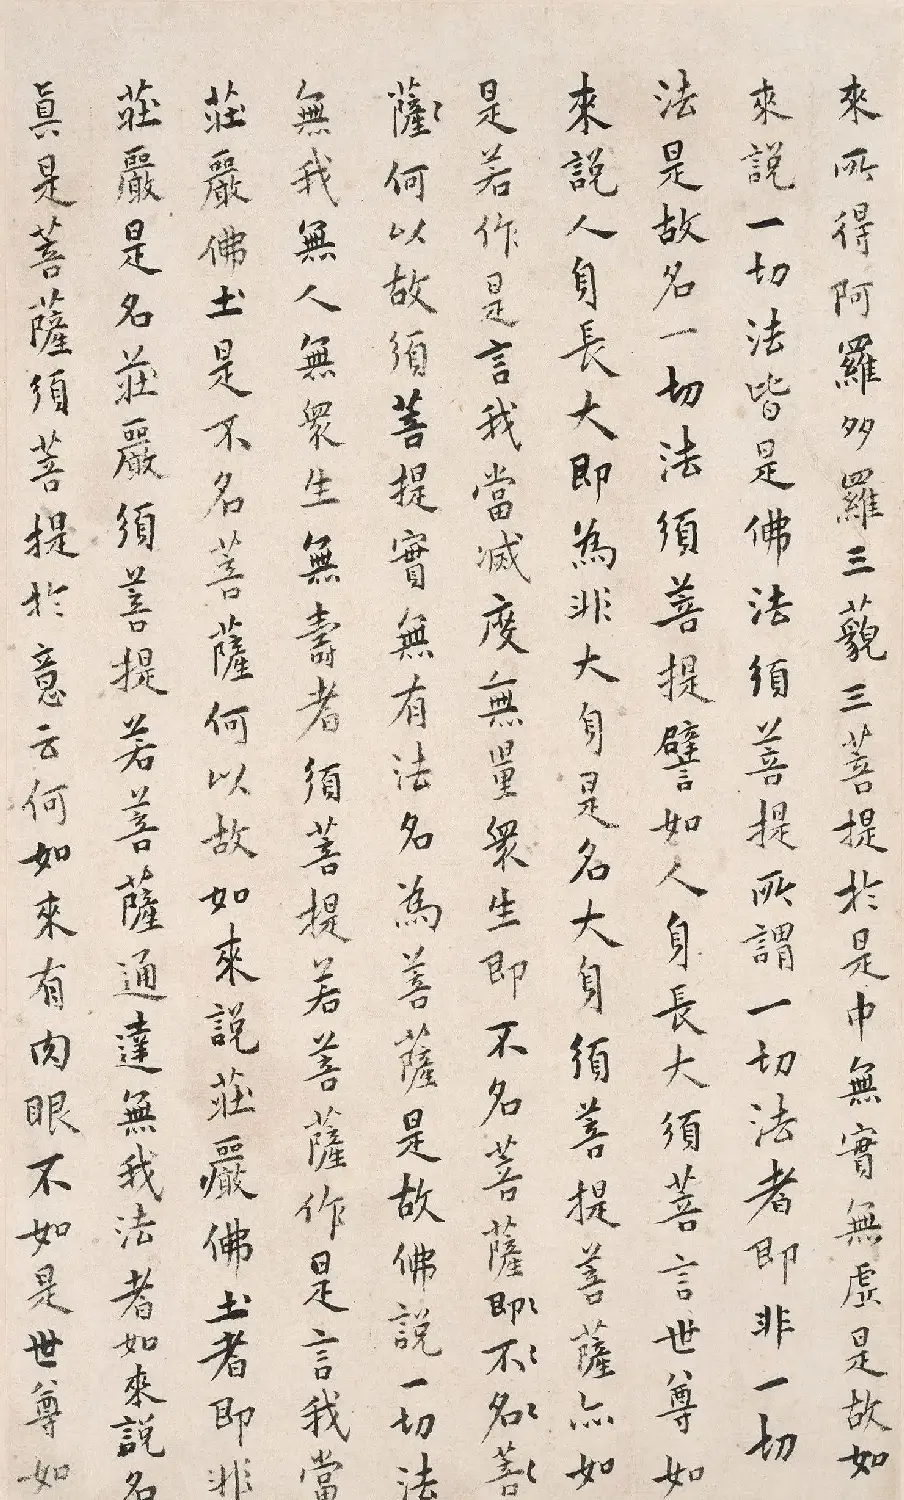 來所得阿羅多羅三藐三菩提於是中無實無虛是故如
來說一切法皆是佛法須菩提所謂一切法者即非一切
法是故名一切法須菩提譬如人身長大須菩言世尊如
來說人身長大即為非大身是名大身須菩提菩薩亦如
是若作是言我當滅度無量眾生即不名菩薩即不名菩
薩何以故須菩提實無有法名為菩薩是故佛說一切法
無我無人無眾生無壽者須菩提若菩薩作是言我當
莊嚴佛土是不名菩薩何以故如來說莊嚴佛土者即非
莊嚴是名莊嚴須菩提若菩薩通達無我法者如來說名
真是菩薩須菩提於意云何如來有肉眼不如是世尊如